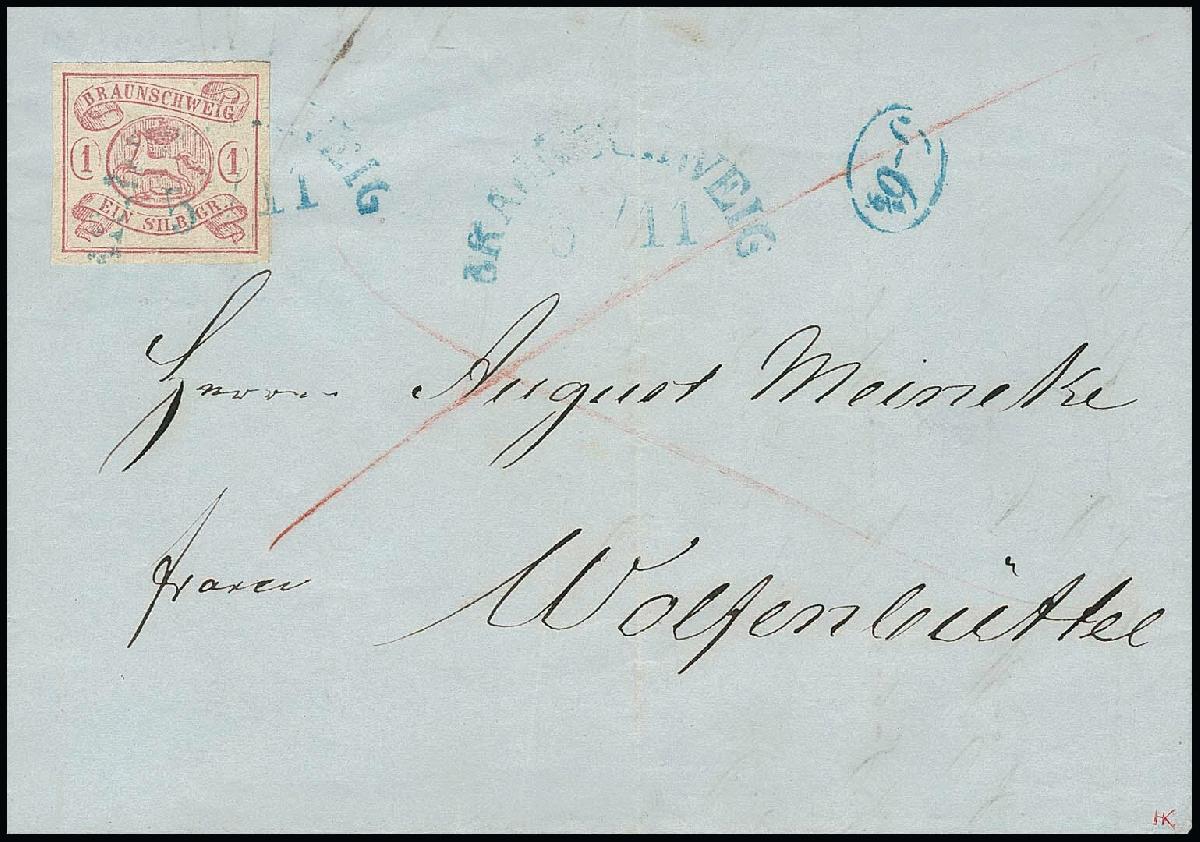 BRAUNSCHWEIG
1 1
EIN SILB. GR.
5 11
BRAUNSCHWEIG
5 / 11
5-6½
Herrn August Meineke
franco Wolfenbüttel
HK